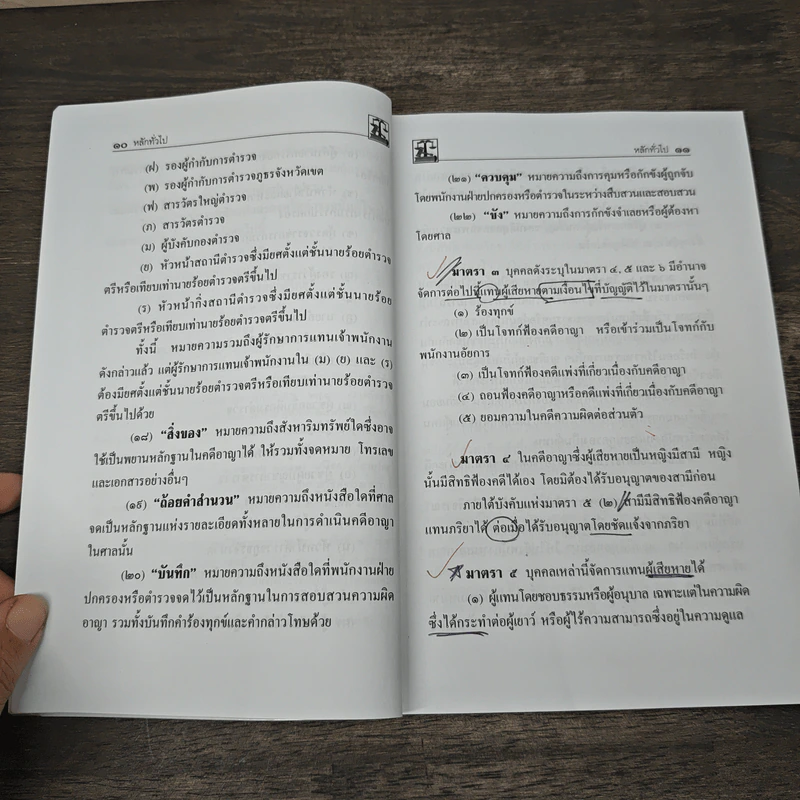 ๑๐ หลักทั่วไป
(ฝ) รองผู้กำกับการตำรวจ
(พ) รองผู้กำกับการตำรวจภูธรจังหวัดเขต
(ฟ) สารวัตรใหญ่ตำรวจ
(ภ) สารวัตรตำรวจ
(ม) ผู้บังคับกองตำรวจ
(ย) หัวหน้าสถานีตำรวจซึ่งมียศตั้งแต่ชั้นนายร้อยตำรวจ
ตรีหรือเทียบเท่านายร้อยตำรวจตรีขึ้นไป
(ร) หัวหน้ากิ่งสถานีตำรวจซึ่งมียศตั้งแต่ชั้นนายร้อย
ตำรวจตรีหรือเทียบเท่านายร้อยตำรวจตรีขึ้นไป
ทั้งนี้ หมายความรวมถึงผู้รักษาการแทนเจ้าพนักงาน
ดังกล่าวแล้ว แต่ผู้รักษาการแทนเจ้าพนักงานใน (ม) (ย) และ (ร)
ต้องมียศตั้งแต่ชั้นนายร้อยตำรวจตรีหรือเทียบเท่านายร้อยตำรวจ
ตรีขึ้นไปด้วย
(๑๘) “สิ่งของ” หมายความถึงสังหาริมทรัพย์ใดซึ่งอาจ
ใช้เป็นพยานหลักฐานในคดีอาญาได้ ให้รวมทั้งจดหมาย โทรเลข
และเอกสารอย่างอื่นๆ
(๑๙) “ถ้อยคำสำนวน” หมายความถึงหนังสือใดที่ศาล
จดเป็นหลักฐานแห่งรายละเอียดทั้งหลายในการดำเนินคดีอาญา
ในศาลนั้น
(๒๐) “บันทึก” หมายความถึงหนังสือใดที่พนักงานฝ่าย
ปกครองหรือตำรวจจดไว้เป็นหลักฐานในการสอบสวนความผิด
อาญา รวมทั้งบันทึกคำร้องทุกข์และคำกล่าวโทษด้วย
หลักทั่วไป ๑๑
(๒๑) “ควบคุม” หมายความถึงการคุมหรือกักขังผู้ถูกจับ
โดยพนักงานฝ่ายปกครองหรือตำรวจในระหว่างสืบสวนและสอบสวน
(๒๒) “ขัง” หมายความถึงการกักขังจำเลยหรือผู้ต้องหา
โดยศาล
มาตรา ๓ บุคคลดังระบุในมาตรา ๔, ๕ และ ๖ มีอำนาจ
จัดการต่อไปนี้แทนผู้เสียหายตามเงื่อนไขที่บัญญัติไว้ในมาตรานั้นๆ
(๑) ร้องทุกข์
(๒) เป็นโจทก์ฟ้องคดีอาญา หรือเข้าร่วมเป็นโจทก์กับ
พนักงานอัยการ
(๓) เป็นโจทก์ฟ้องคดีแพ่งที่เกี่ยวเนื่องกับคดีอาญา
(๔) ถอนฟ้องคดีอาญาหรือคดีแพ่งที่เกี่ยวเนื่องกับคดีอาญา
(๕) ยอมความในคดีความผิดต่อส่วนตัว
มาตรา ๔ ในคดีอาญาซึ่งผู้เสียหายเป็นหญิงมีสามี หญิง
นั้นมีสิทธิฟ้องคดีได้เอง โดยมิต้องได้รับอนุญาตของสามีก่อน
ภายใต้บังคับแห่งมาตรา ๕ (๒) สามีมีสิทธิฟ้องคดีอาญา
แทนภริยาได้ ต่อเมื่อได้รับอนุญาตโดยชัดแจ้งจากภริยา
มาตรา ๕ บุคคลเหล่านี้จัดการแทนผู้เสียหายได้
(๑) ผู้แทนโดยชอบธรรมหรือผู้อนุบาล เฉพาะแต่ในความผิด
ซึ่งได้กระทำต่อผู้เยาว์ หรือผู้ไร้ความสามารถซึ่งอยู่ในความดูแล